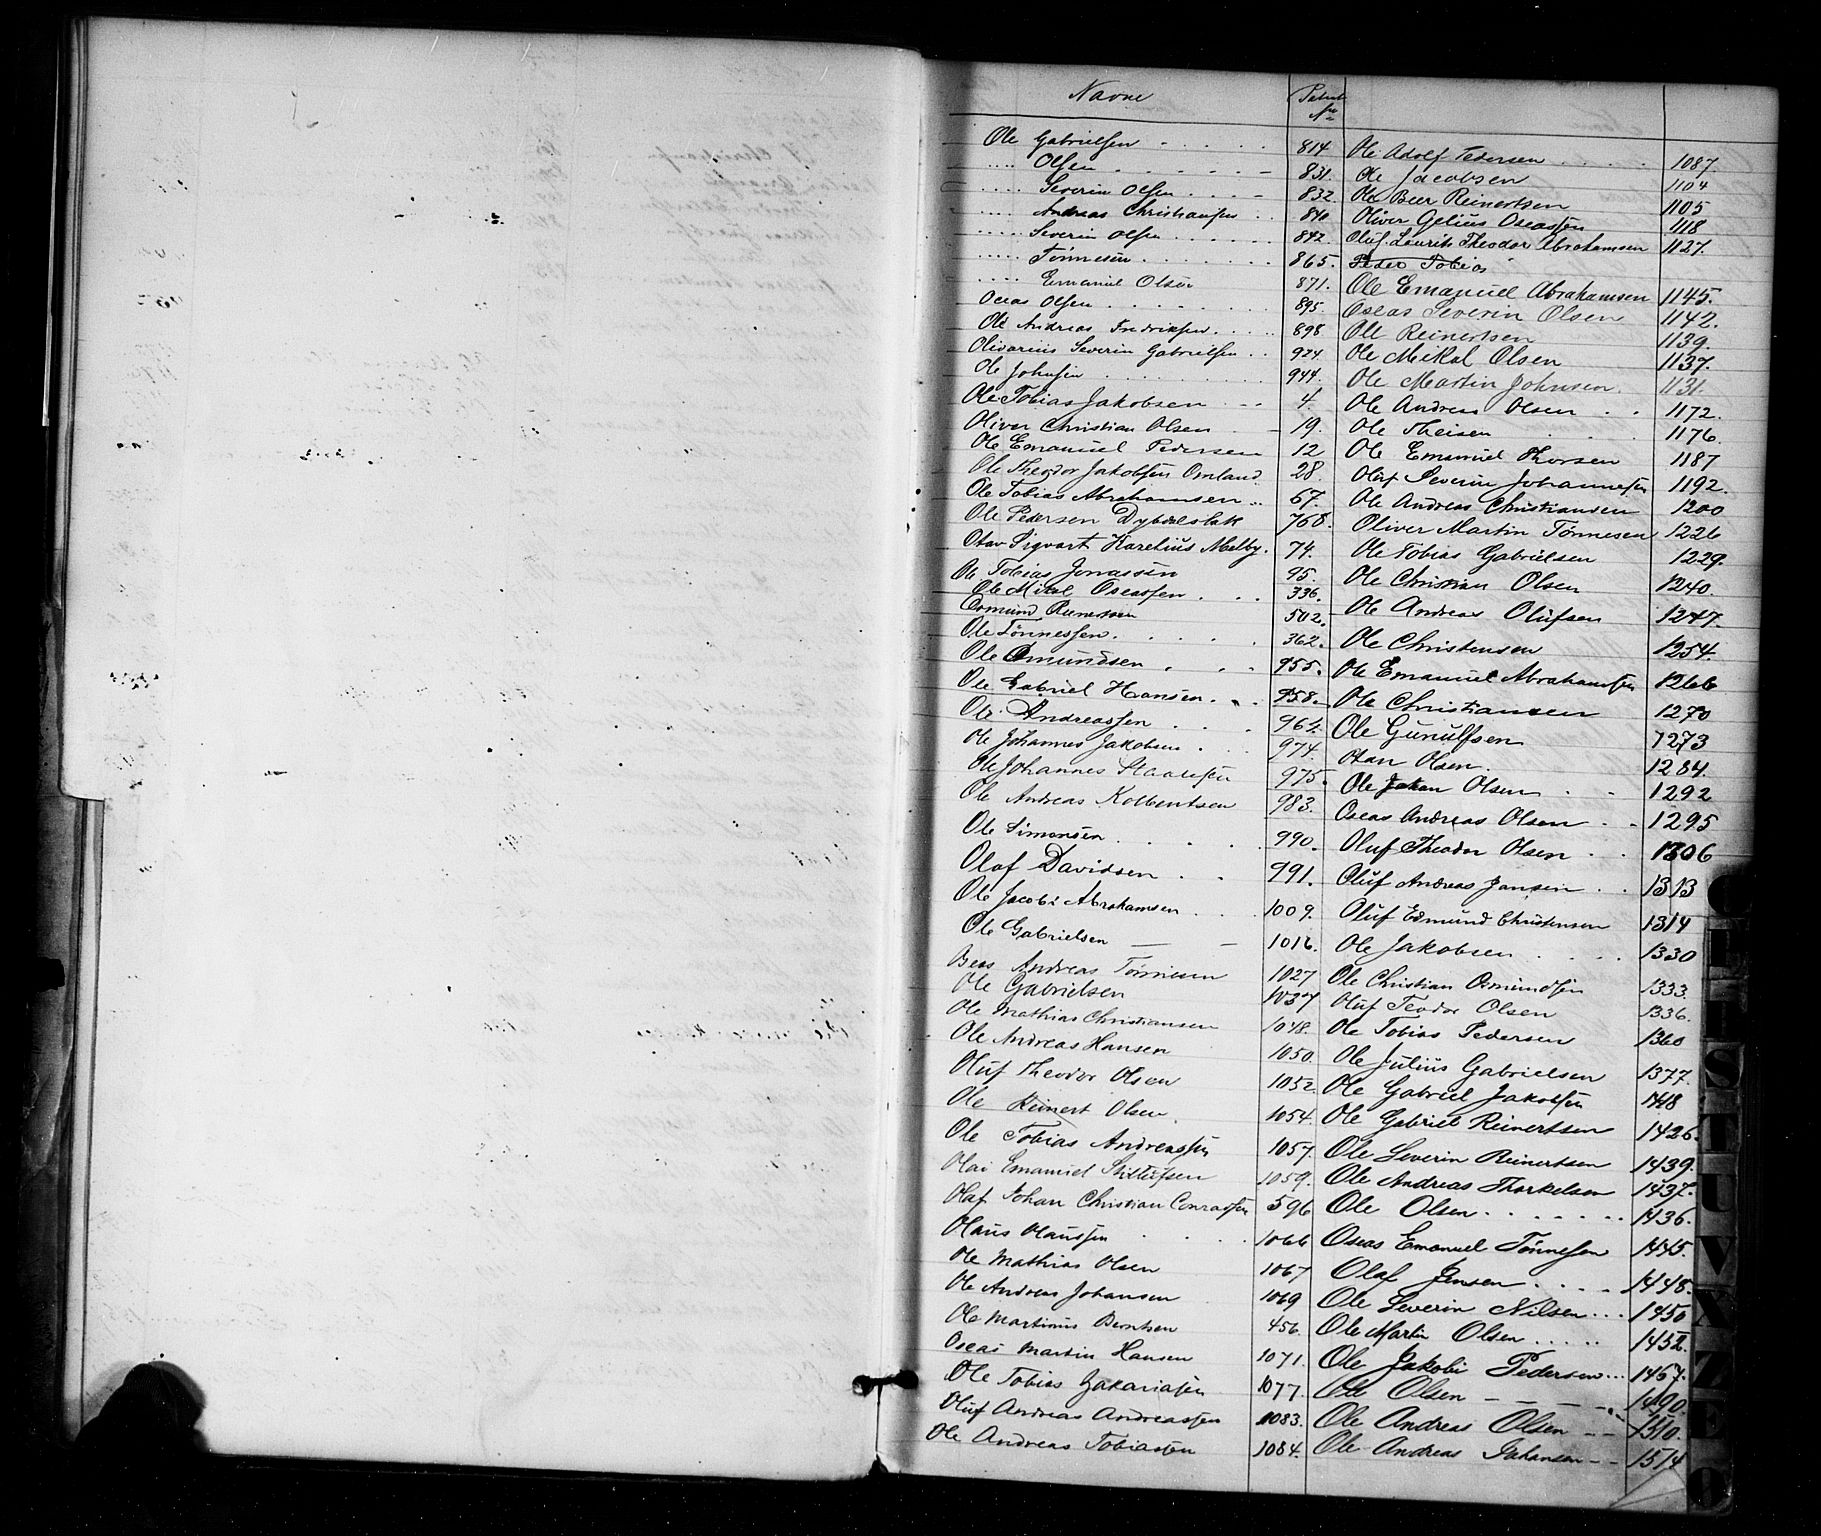 Navne Patent No
Ole Gabrielsen . . . . . 814
..... Olsen . . . . . . . 831.
..... Severin Olsen . . . . 832.
..... Andreas Christiansen . . 840
..... Severin Olsen . . . . . . 842.
..... Tønnesen . . . . . . . 865.
..... Emanuel Olsen 871.
Oseas Olsen . . . . . . . 895.
Ole Andreas Fredriksen . . . . 898
Olivarius Severin Gabrielsen . . 924.
Ole Johnsen . . . . . . . . 944.
Ole Tobias Jakobsen . . . 4.
Oliver Christian Olsen 19.
Ole Emanuel Pedersen 12
Ole Theodor Jakobsen Omland 28.
Ole Tobias Abrahamsen .. 67.
Ole Pedersen Dybdelslak 768.
Otav Sigvart Karelius Melby. 74.
Ole Tobias Jonassen 95.
Ole Mikal Oseassen . . . 336.
Osmund Reinertsen 502.
Ole Tønnessen . . . . . 362.
Ole Omundsen . . . 955.
Ole Gabriel Hansen . . . 958.
Ole Andreassen . . . 964.
Ole Johannes Jakobsen . . 974.
Ole Johannes 975.
Ole Andreas Kolbentsen 983.
Ole Simonsen . . . . . 990.
Olaf Davidsen . . 991.
Ole Jacobi Abrahamsen . . . 1009.
Ole Gabrielsen — — 1016.
Andreas Tønnesen 1027
Ole Gabrielsen 1037
Ole Mathias Christiansen 1048.
Ole Andreas Hansen 1050.
Oluf Theodor Olsen 1052
Ole Reinert Olsen 1054.
Ole Tobias Andreassen 1057.
Olai Emanuel 1059.
Olaf Johan Christian Conradsen 596
Olaus Olaussen . . . . 1066
Ole Mathias Olsen 1067
Ole Andreas Johansen 1069
Ole Martinius Berntsen 456.
Oseas Martin Hansen 1071.
Ole Tobias Zakariasen 1077.
Oluf Andreas Andreassen 1083.
Ole Andreas Tobiassen 1084.
Ole Adolf Pedersen . . . . . 1087.
Ole Jacobsen 1104
Ole Beer Reinertsen 1105
Oliver Gelius Oseassen 1118
Oluf Laurits Theodor Abrahamsen 1127.
Peder Tobias
Ole Emanuel Abrahamsen 1145.
Oseas Severin Olsen 1142.
Ole Reinertsen 1139.
Ole Mikal Olsen 1137.
Ole Martin Johnsen. 1131.
Ole Andreas Olsen . . 1172.
Ole Theisen . . . . 1176.
Ole Emanuel Thorsen 1187
Oluf Severin Johannesen 1192.
Ole Andreas Christiansen 1200
Oliver Martin Tønnesen 1226
Ole Tobias Gabrielsen 1229.
Ole Christian Olsen 1240.
Ole Andreas Olufsen 1247.
Ole Christensen 1254.
Ole Emanuel Abrahamsen 1266
Ole Christiansen 1270
Ole Gunulfsen 1273
Otan Olsen. 1284.
Ole Johan Olsen . . 1292
Oseas Andreas Olsen . . 1295
Oluf Theodor Olsen . . 1306
Oluf Andreas Jansen . . 1313
Oluf Edmund Christensen 1314
Ole Jakobsen . . . . 1330
Ole Christian Osmundsen 1333.
Oluf Teodor Olsen 1336.
Ole Tobias Pedersen 1360
Ole Julius Gabrielsen 1377.
Ole Gabriel Jakobsen 1418
Ole Gabriel Reinertsen 1426.
Ole Severin Reinertsen 1439.
Ole Andreas Thorkelsen 1437.
Ole Olsen . . . . . . . 1436.
Oseas Emanuel Tønnesen 1445.
Olaf Jensen . . . . 1448.
Ole Severin Nilsen ... 1450
Ole Martin Olsen ..... 1452.
Ole Jakobi Pedersen... 1467.
Ole Olsen — — — — 1490.
Ole Andreas Olsen — — 1510.
Ole Andreas Johansen — — 1514
S
T
U
V
X
Z
Æ
Ø